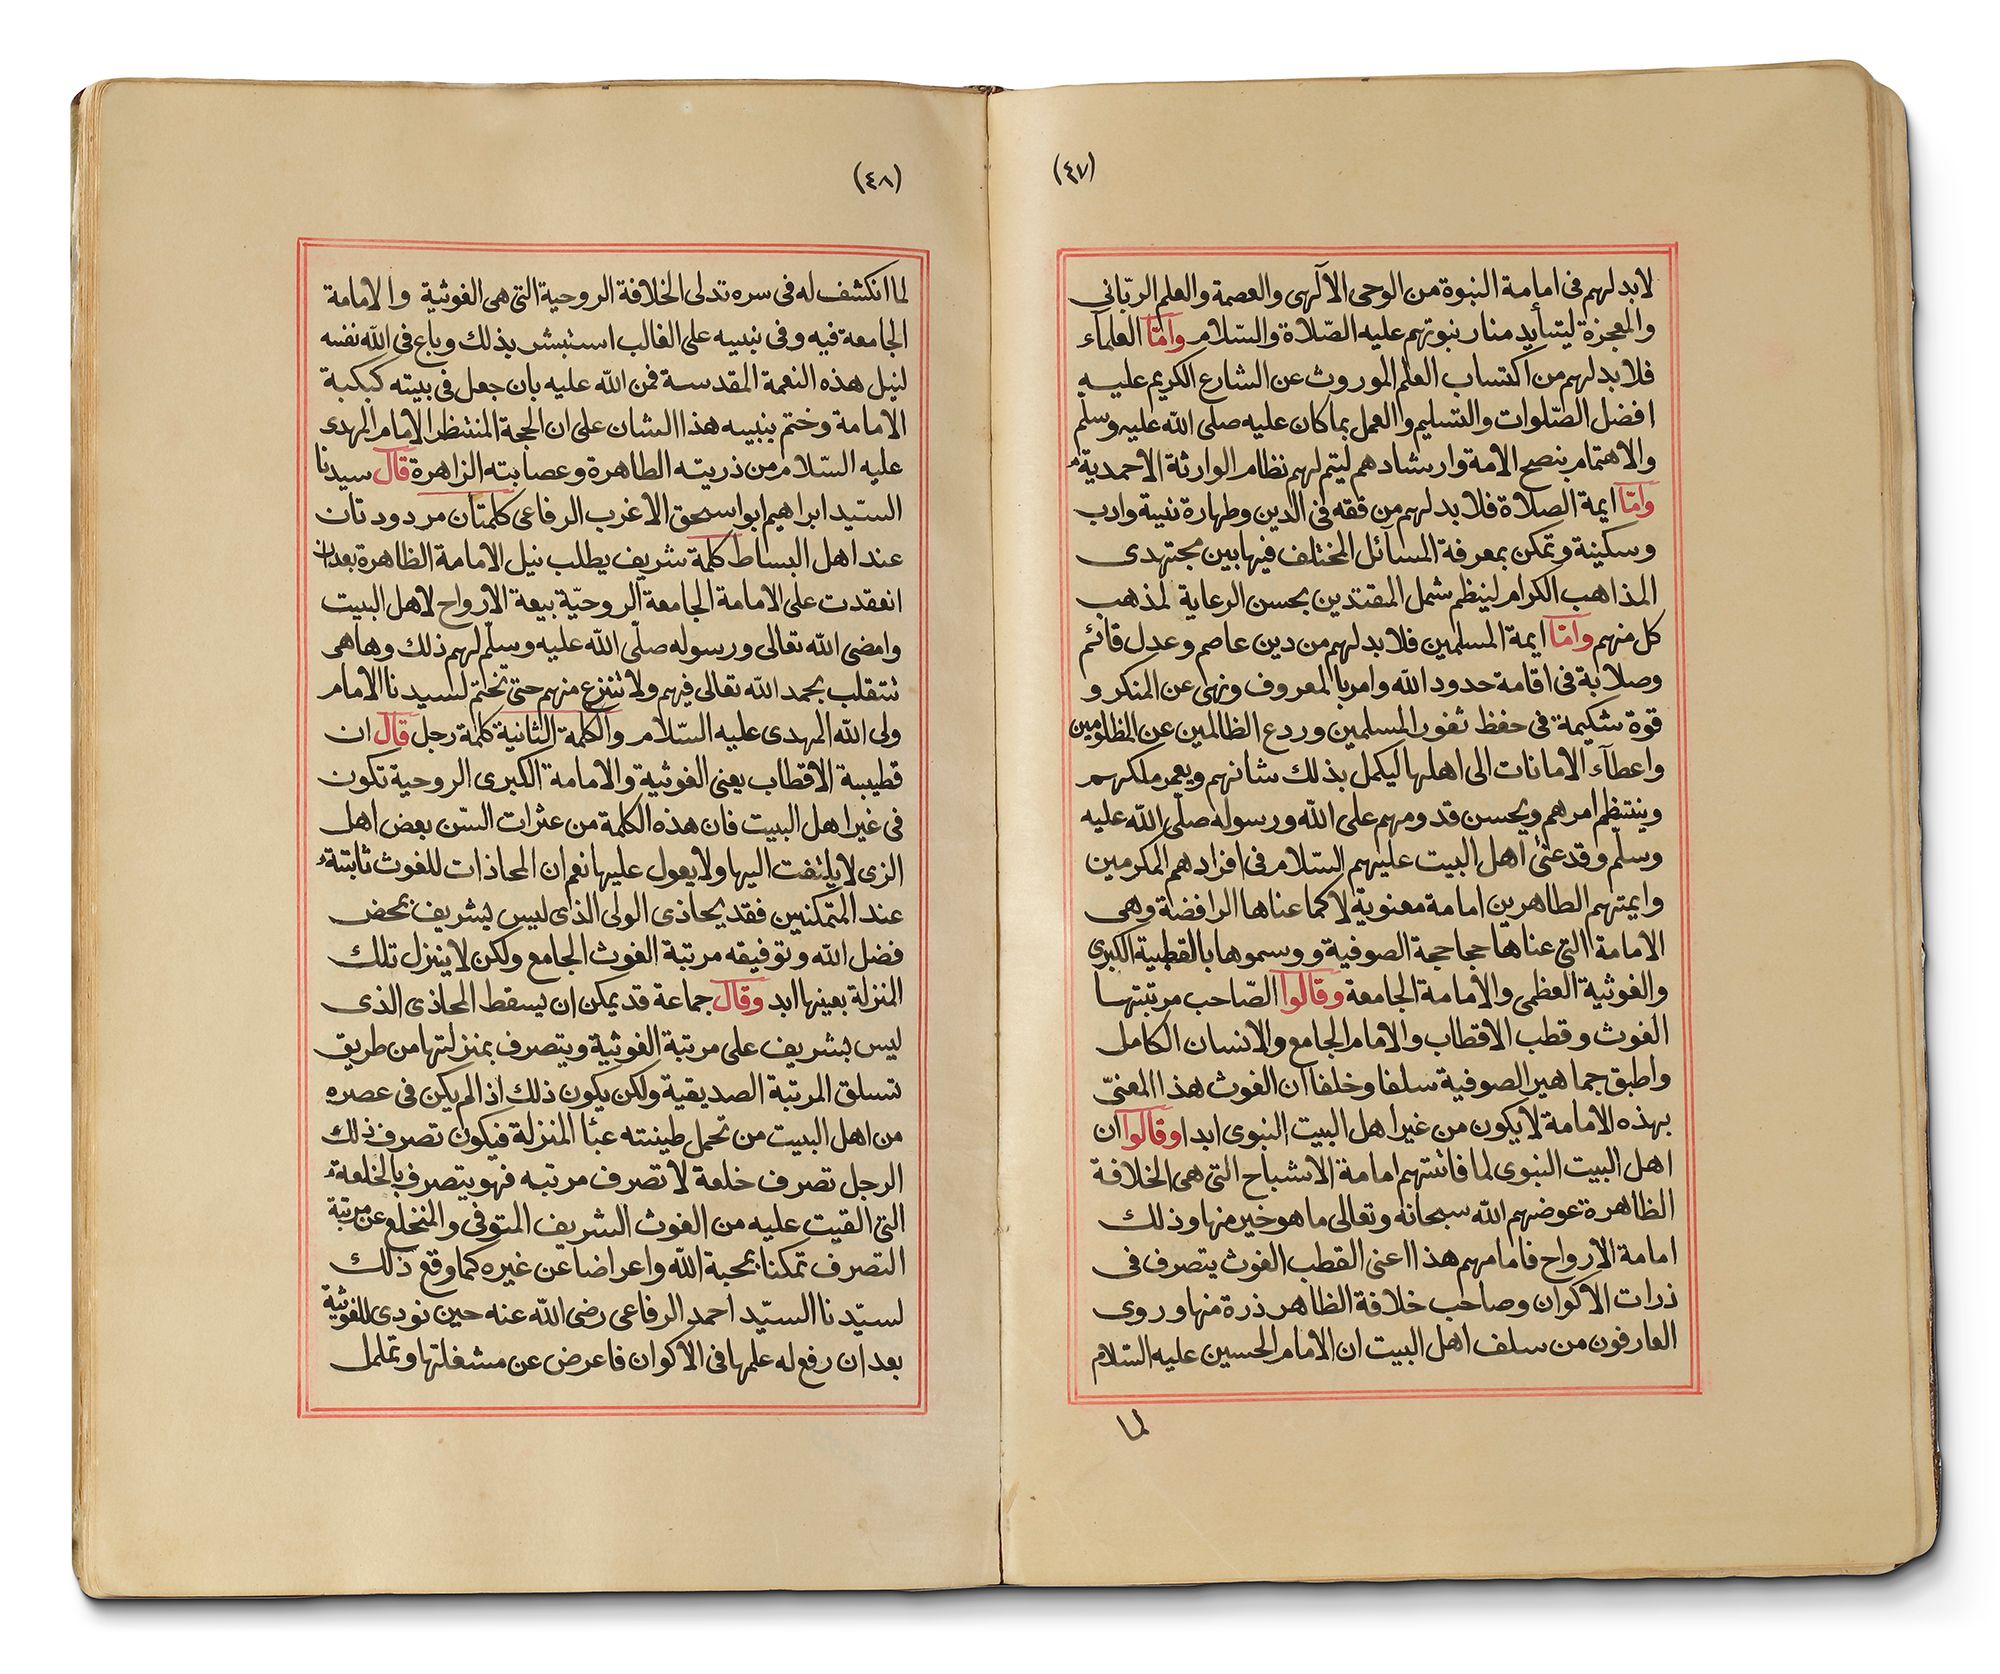 (٤٧)
لابد لهم فى امامة النبوة من الوحى الآلهى والعصمة والعلم الربّانى
والمعجزة ليتأيد منار نبوتهم عليه الصّلاة والسّلام وامّا العلماء
فلابد لهم من اكتساب العلم الموروث عن الشارع الكريم عليه
افضل الصّلوات والتسليم والعمل بما كان عليه صلى الله عليه وسلم
والاهتمام بنصح الامة وارشادهم ليتم لهم نظام الوارثة الاحمدية
وامّا ايمة الصلاة فلابد لهم من فقه فى الدين وطهارة نية وادب
وسكينة وتمكن بمعرفة المسائل المختلف فيها بين مجتهدى
المذاهب الكرام لينظم شمل المقتدين بحسن الرعاية لمذهب
كل منهم وامّا ايمة المسلمين فلابد لهم من دين عاصم وعدل قائم
وصلابة فى اقامة حدود الله وامر بالمعروف ونهى عن المنكر و
قوة شكيمة فى حفظ ثغور المسلمين وردع الظالمين عن المظلومين
واعطآء الامانات الى اهلها ليكمل بذلك شانهم ويعمر ملكهم
وينتظم امرهم ويحسن قدومهم على الله ورسوله صلّى الله عليه
وسلّم وقد عنى اهل البيت عليهم السّلام فى افرادهم المكرمين
وايمتهم الطاهرين امامة معنوية لا كما عناها الرافضة وهى
الامامة التى عناها حجاحجة الصوفية ووسموها بالقطبية الكبرى
والغوثية العظمى والامامة الجامعة وقالوا الصّاحب مرتبتها
الغوث وقطب الاقطاب والامام الجامع والانسان الكامل
واطبق جماهير الصوفية سلفا وخلفا ان الغوث هذا المعنىّ
بهذه الامامة لا يكون من غير اهل البيت النبوى ابدا وقالوا ان
اهل البيت النبوى لما فاتتهم امامة الاشباح التى هى الخلافة
الظاهرة عوضهم الله سبحانه وتعالى ما هو خير منها وذلك
امامة الارواح فامامهم هذا اعنى القطب الغوث يتصرف فى
ذرات الاكوان وصاحب خلافة الظاهر ذرة منها وروى
العارفون من سلف اهل البيت ان الامام الحسين عليه السّلام
لما
(٤٨)
لما انكشف له فى سره تدلى الخلافة الروحية التى هى الغوثية والامامة
الجامعة فيه وفى بنيه على الغالب استبشر بذلك وباع فى الله نفسه
لنيل هذه النعمة المقدسة فمن الله عليه بان جعل فى بيته كبكبة
الامامة وختم ببنيه هذا الشان على ان الحجة المنتظر الامام المهدى
عليه السّلام من ذريته الطاهرة وعصابته الزاهرة قال سيدنا
السّيد ابراهيم ابو اسحق الاعزب الرفاعى كلمتان مردودتان
عند اهل البساط كلمة شريف يطلب نيل الامامة الظاهرة بعد ان
انعقدت على الامامة الجامعة الروحيّة بيعة الارواح لاهل البيت
وامضى الله تعالى ورسوله صلّى الله عليه وسلّم لهم ذلك وها هى
تتقلب بحمد الله تعالى فيهم ولا تنزع منهم حتى تختم لسيدنا الامام
ولى الله المهدى عليه السّلام والكلمة الثانية كلمة رجل قال ان
قطبية الاقطاب يعنى الغوثية والامامة الكبرى الروحية تكون
فى غير اهل البيت فان هذه الكلمة من عثرات السّن بعض اهل
الزى لا يلتفت اليها ولا يعول عليها نعم ان المحاذات للغوث ثابتة
عند المتمكنين فقد يحاذى الولى الذى ليس بشريف بمحض
فضل الله وتوفيقه مرتبة الغوث الجامع ولكن لا ينزل تلك
المنزلة بعينها ابد وقال جماعة قد يمكن ان يسقط المحاذى الذى
ليس بشريف على مرتبة الغوثية ويتصرف بمنزلتها من طريق
تسلق المرتبة الصديقية ولكن يكون ذلك اذا لم يكن فى عصره
من اهل البيت من تحمل طينته عبأ المنزلة فيكون تصرف ذلك
الرجل تصرف خلعة لا تصرف مرتبه فهو يتصرف بالخلعة
التى القيت عليه من الغوث الشريف المتوفى والمنخلع عن مرتبة
التصرف تمكنا بمحبة الله واعراضا عن غيره كما وقع ذلك
لسيّدنا السيّد احمد الرفاعى رضى الله عنه حين نودى للغوثية
بعد ان رفع له علمها فى الاكوان فاعرض عن مشغلتها وتململ